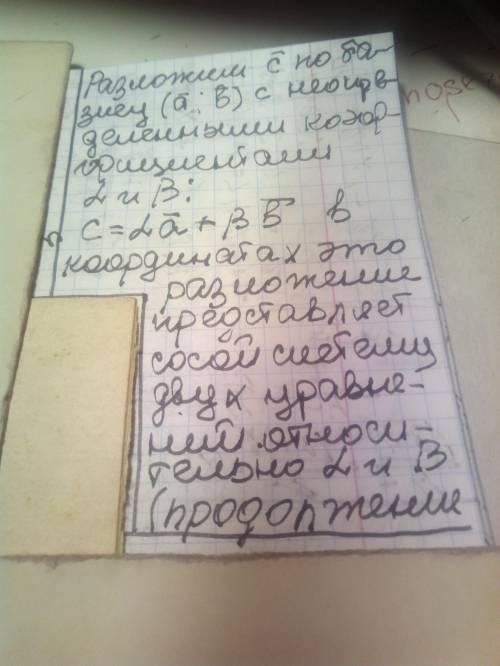 Разложим c̄ по ба-
зису (ā; b̄) с неопре-
деленными коэф-
фициентами
α и β:
c = αā + β b̄ в
координатах это
разложение
представляет
собой систему
двух уравне-
ний относи-
тельно α и β
(продолжение